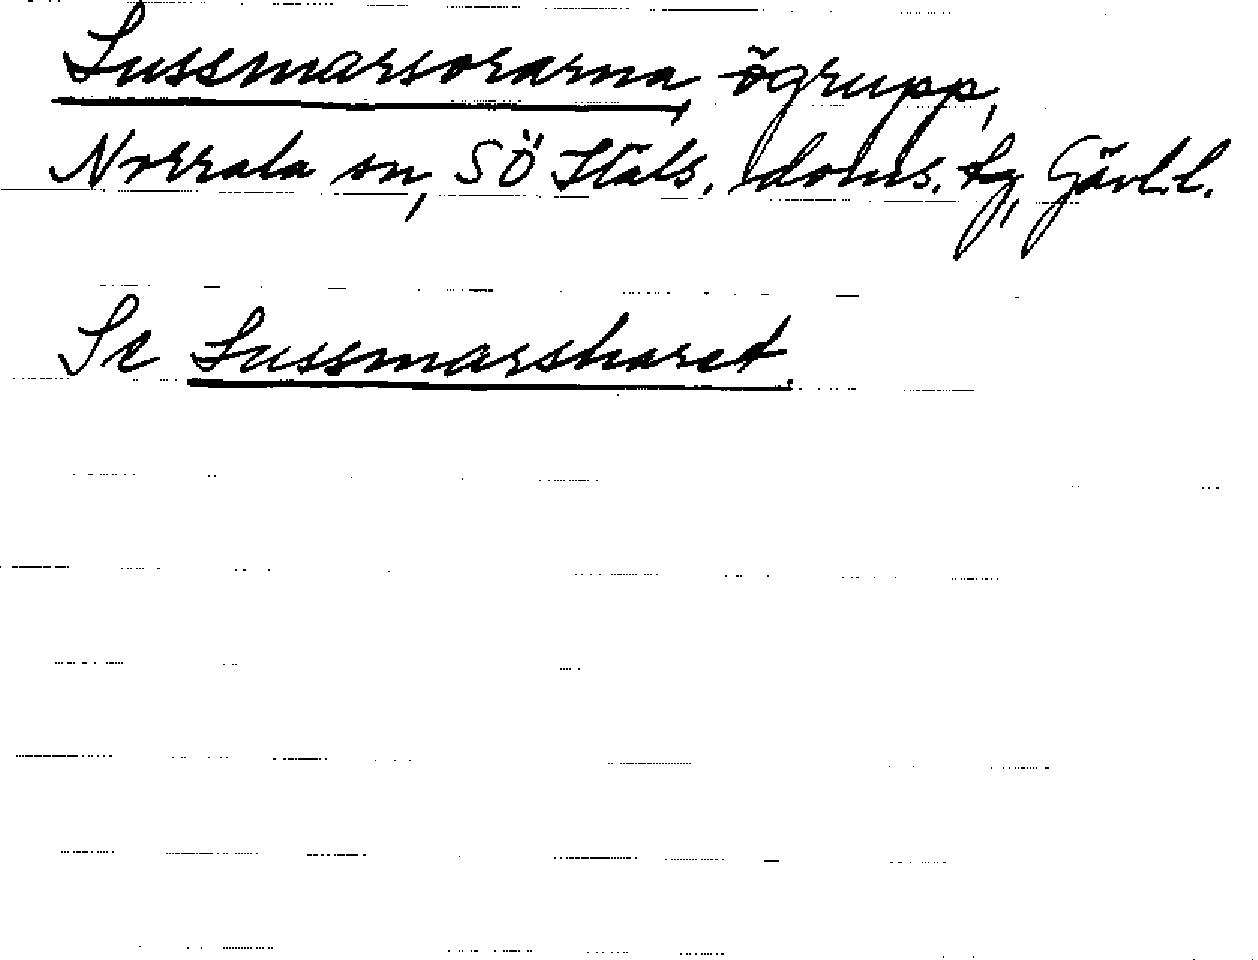 Lussmarsorarna, ögrupp,
Norrala sn, SÖ Häls. doms. tg, Gävl.l.
Se Lussmarsharet